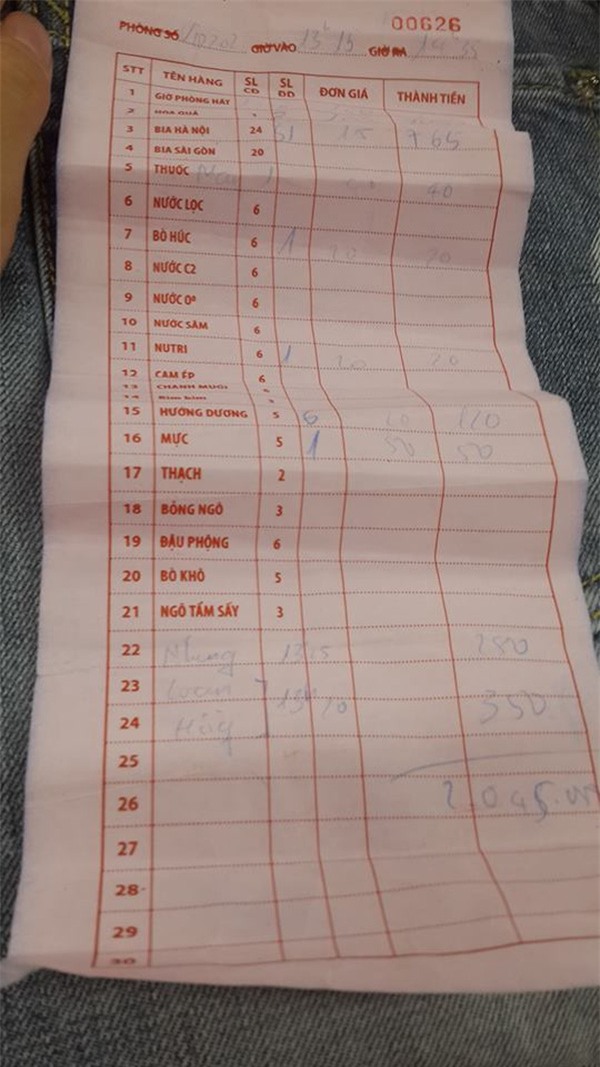 00626
PHÒNG SỐ P202 GIỜ VÀO 13h15 GIỜ RA 19h35
STT TÊN HÀNG SL CĐ SL DD ĐƠN GIÁ THÀNH TIỀN
1 GIỜ PHÒNG HÁT
2 HOA QUẢ
3 BIA HÀ NỘI 24 51 15 765
4 BIA SÀI GÒN 20
5 THUỐC 1 40
6 NƯỚC LỌC 6
7 BÒ HÚC 6 1 20 20
8 NƯỚC C2 6
9 NƯỚC O° 6
10 NƯỚC SÂM 6
11 NUTRI 6 1 20 20
12 CAM ÉP 6
13 CHANH MUỐI
14 Bim bim
15 HƯỚNG DƯƠNG 5 6 20 120
16 MỰC 5 1 50 50
17 THẠCH 2
18 BỎNG NGÔ 3
19 ĐẬU PHỘNG 6
20 BÒ KHÔ 5
21 NGÔ TẨM SẤY 3
22 Nhung 280
23 Loan 13h20 350
24
25
26 2.045.00
27
28
29
30